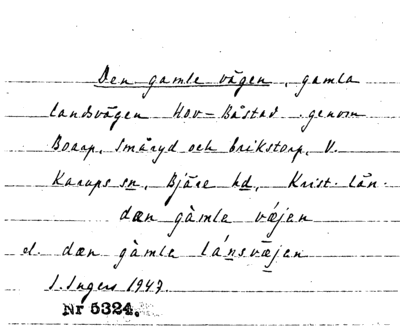 Den gamle vägen, gamla
landsvägen Hov-Båstad genom
Boarp, Småryd och Erikstorp, V.
Karups sn, Bjäre hd, Krist. län.
dæn gàmle vǽjen
el. dæn gàmle lánsvæ̀jen
I. Ingers 1947.
Nr 5324.